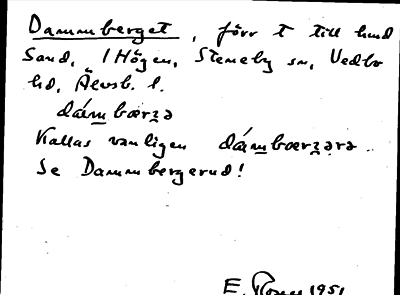 Dammberget, förr t till hmd
Sand, 1 Högen, Steneby sn, Vedbo
hd, Älvsb. l.
dám̲bærʒ̲ə
Kallas vanligen dám̲bærʒ̲ərə
Se Dammbergerud!
E. 1951